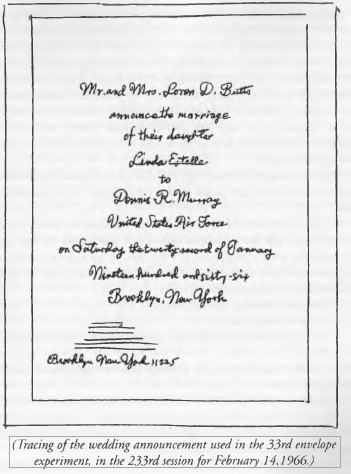 Mr. and Mrs. Loren D. Butts
announce the marriage
of their daughter
Linda Estelle
to
Dennis R. Murray
United States Air Force
on Saturday the twenty second of January
Nineteen hundred and sixty-six
Brooklyn, New York
Brooklyn New York 11225
(Tracing of the wedding announcement used in the 33rd envelope
experiment, in the 233rd session for February 14,1966.)